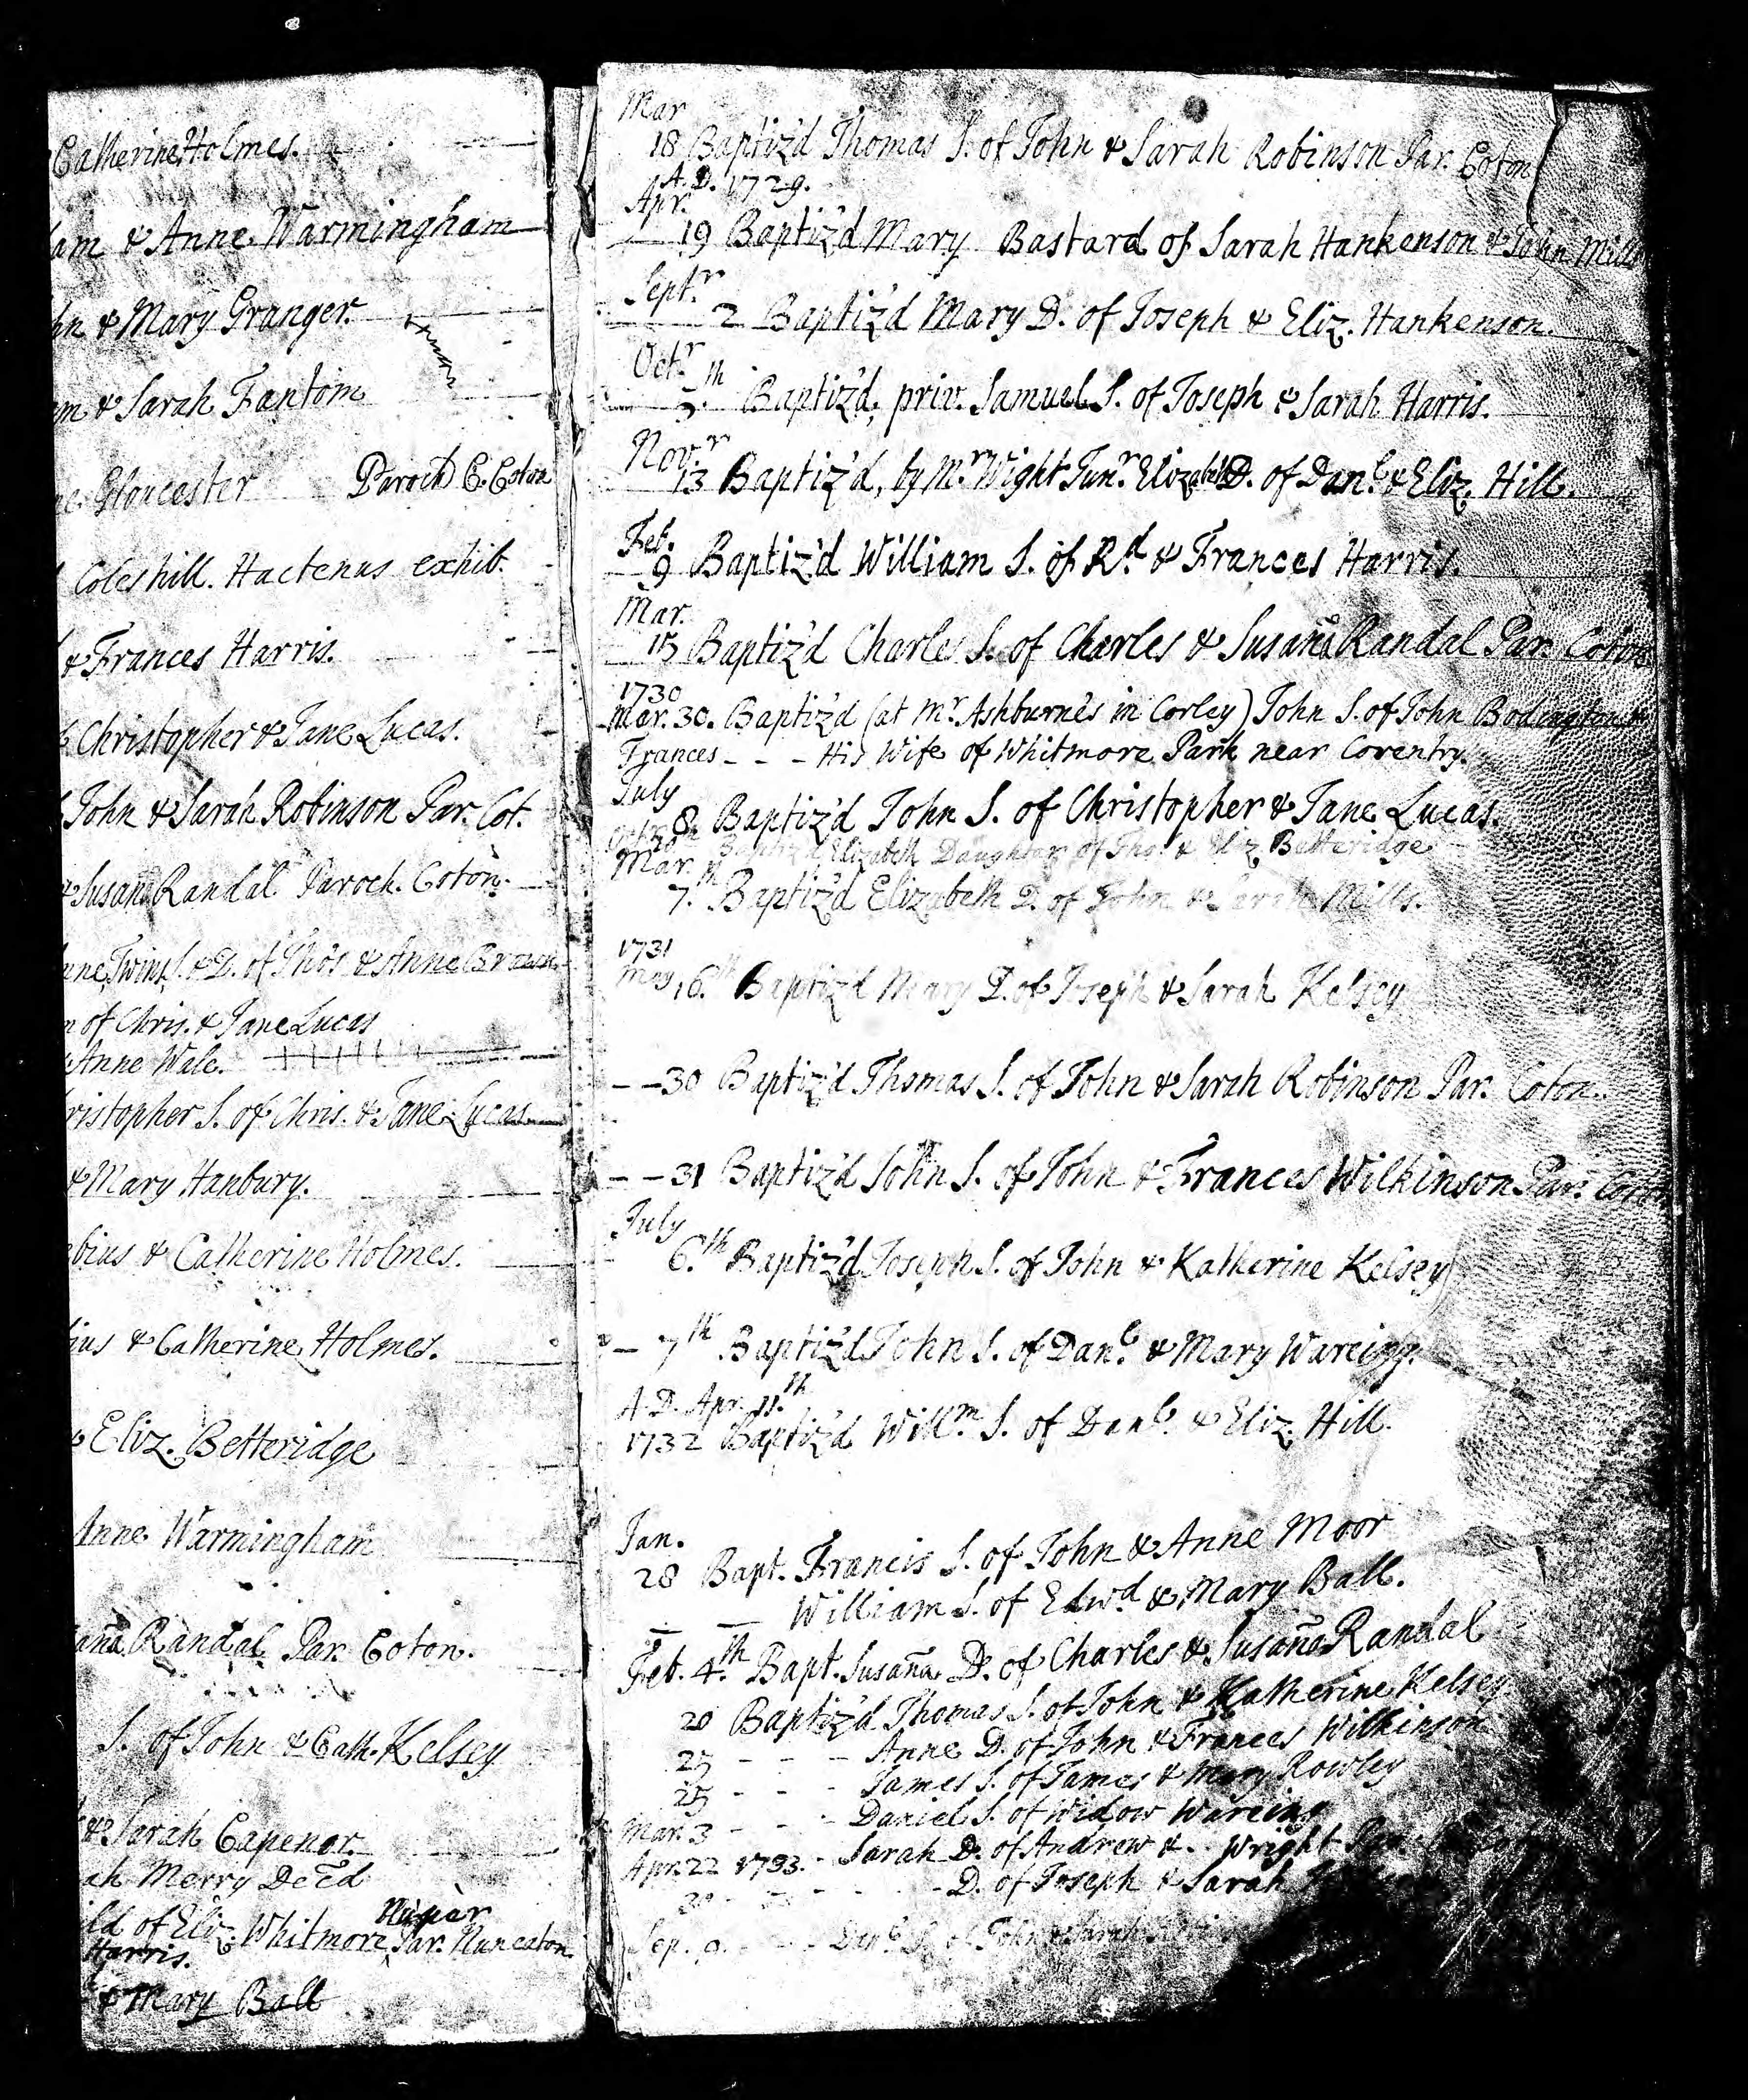 Catherine Holmes.
am & Anne Warmingham
hn & Mary Granger.
m & Sarah Fantom
Gloucester Paroch C. Coton
Coleshill. Hactenus exhib.
& Frances Harris.
Christopher & Jane Lucas.
John & Sarah Robinson Par. Cot.
& Susaña Randal Paroch. Coton.
nne Twins S. & D. of Thos & Anne Brown
n of Chris. & Jane Lucas
Anne Wale.
ristopher S. of Chris. & Jane Lucas
& Mary Hanbury.
bius & Catherine Holmes.
ius & Catherine Holmes.
& Eliz. Betteridge
Anne Warmingham
aña Randal Par. Coton.
S. of John & Cath. Kelsey
& Sarah Capener.
ah Merry Deĉed
Nuper
ild of Eliz. Whitmore, Par. Nuneaton
Harris.
& Mary Ball
Mar
18 Baptiz'd Thomas S. of John & Sarah Robinson Par. Coton
A.D. 1729.
Apr.
19 Baptiz'd Mary Bastard of Sarah Hankenson & John Mills
Septr.
2 Baptiz'd Mary D. of Joseph & Eliz. Hankenson.
Octr.
th Baptiz'd, priv. Samuel S. of Joseph & Sarah Harris.
Novr.
13 Baptiz'd, by Mr. Wight Junr. Elizabeth D. of Danl. & Eliz. Hill.
Feb.
9 Baptiz'd William S. of Rd. & Frances Harris.
Mar.
15 Baptiz'd Charles S. of Charles & Susaña Randal Par. Coton
1730
Mar. 30. Baptiz'd (at Mr. Ashburne's in Corley) John S. of John Bodington &
Frances - - - His Wife of Whitmore Park near Coventry.
July
8 Baptiz'd John S. of Christopher & Jane Lucas.
Baptiz'd Elizabeth Daughter of Thos. & Eliz Betteridge
Mar.
7.th Baptiz'd Elizabeth D. of John & Sarah Mills.
1731
May 16.th Baptiz'd Mary D. of Joseph & Sarah Kelsey
- - 30 Baptiz'd Thomas S. of John & Sarah Robinson Par. Coton.
- - 31 Baptiz'd John S. of John & Frances Wilkinson Par. Coton
July
6.th Baptiz'd Joseph S. of John & Katherine Kelsey
- 7th Baptiz'd John S. of Danl. & Mary Wareing.
A.D. Apr. 11.th
1732 Baptiz'd Willm. S. of Danl. & Eliz. Hill.
Jan.
28 Bapt. Francis S. of John & Anne Moor
- - William S. of Edwd. & Mary Ball.
Feb. 4.th Bapt. Susaña D. of Charles & Susaña Randal
20 Baptiz'd Thomas S. of John & Katherine Kelsey
25 - - - Anne D. of John & Frances Wilkinson
25 - - - James S. of James & Mary Rowley
Mar. 3 - - - Daniel S. of Widow Wareing
Apr. 22 1733. - Sarah D. of Andrew & . . Wright
- D. of Joseph & Sarah
Sep. 9. - - - Danl. S. of John & Sarah